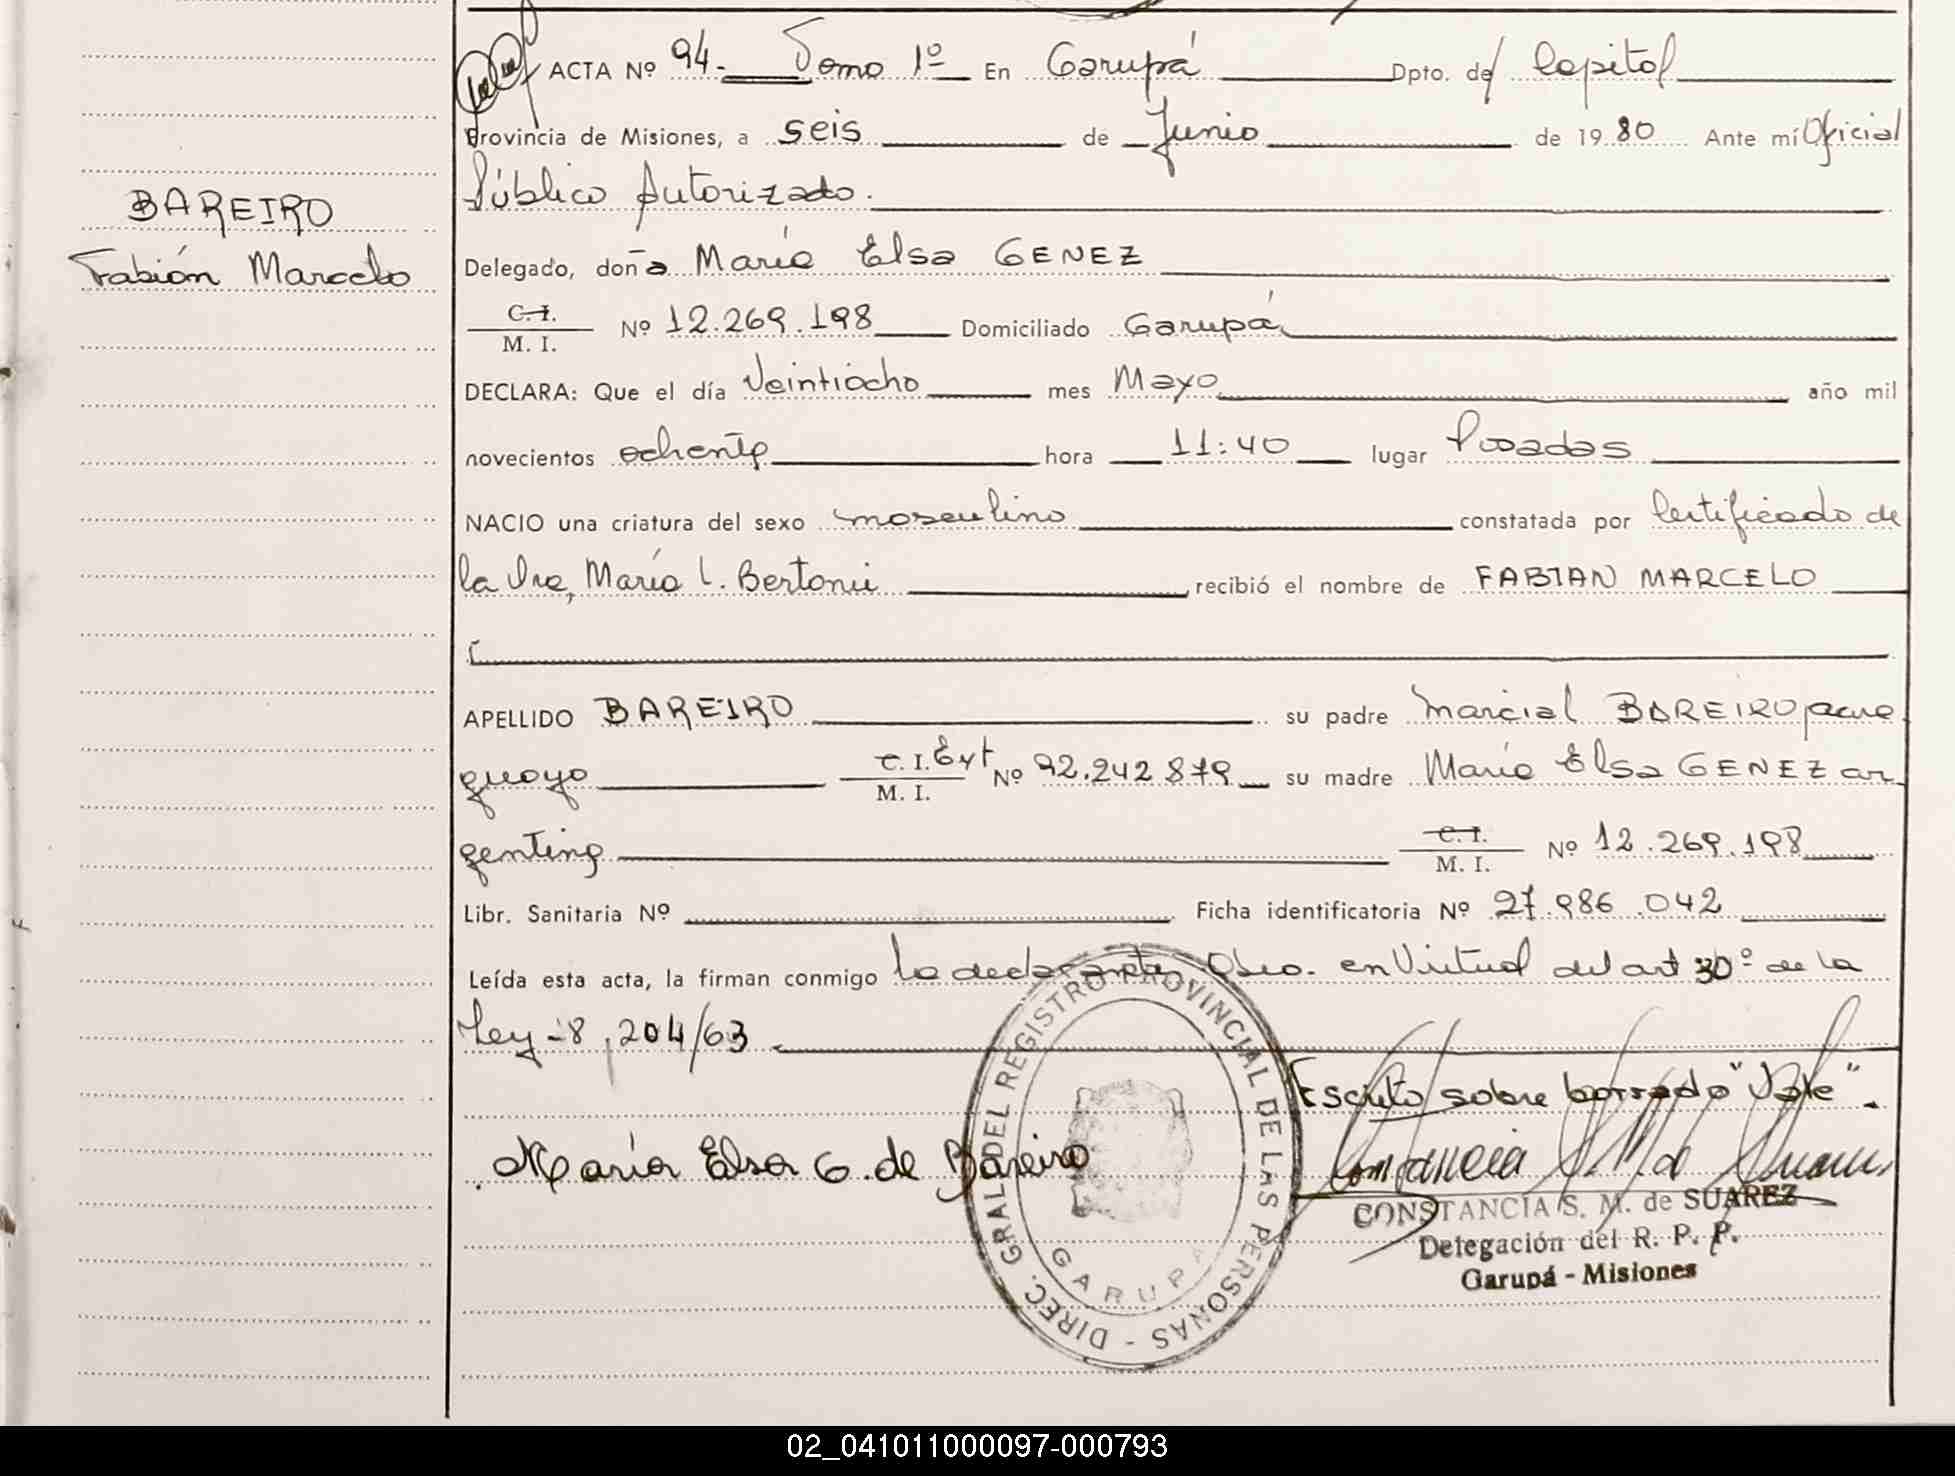 BAREIRO
Fabián Marcelo
ACTA Nº 94. Tomo 1º En Garupá Dpto. de Capital
Provincia de Misiones, a seis de Junio de 1980 Ante mí Oficial
Público Autorizado.
Delegado, doña María Elsa GENEZ
C. I.
M. I. Nº 12.269.198 Domiciliado Garupá
DECLARA: Que el día Veintiocho mes Mayo año mil
novecientos ochenta hora 11:40 lugar Posadas
NACIO una criatura del sexo masculino constatada por Certificado de
la Dra, María L. Bertonii recibió el nombre de FABIAN MARCELO
APELLIDO BAREIRO su padre Marcial BAREIRO para
guayo C. I. Ext Nº 92.242.879 su madre María Elsa GENEZ ar
M. I.
gentina C. I. Nº 12.269.198
M. I.
Libr. Sanitaria Nº Ficha identificatoria Nº 27.986.042
Leída esta acta, la firman conmigo la declarante, en Virtud del art 30º de la
Ley-8,204/63
Escrito sobre borrado "Vale".
María Elsa G. de Bareiro
DIREC. GRAL. DEL REGISTRO PROVINCIAL DE LAS PERSONAS -
GARUPA
CONSTANCIA S. M. de SUAREZ
Delegación del R. P. P.
Garupá - Misiones
02_041011000097-000793